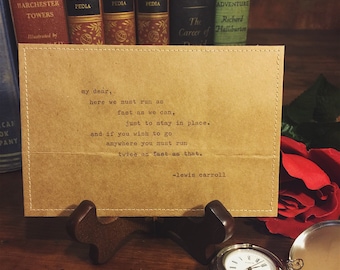 BARCHESTER
TOWERS
The
Career
of
ADVENTURE
Richard
Halliburton
my dear,
here we must run as
fast as we can,
just to stay in place.
and if you wish to go
anywhere you must run
twice as fast as that.
-lewis carroll